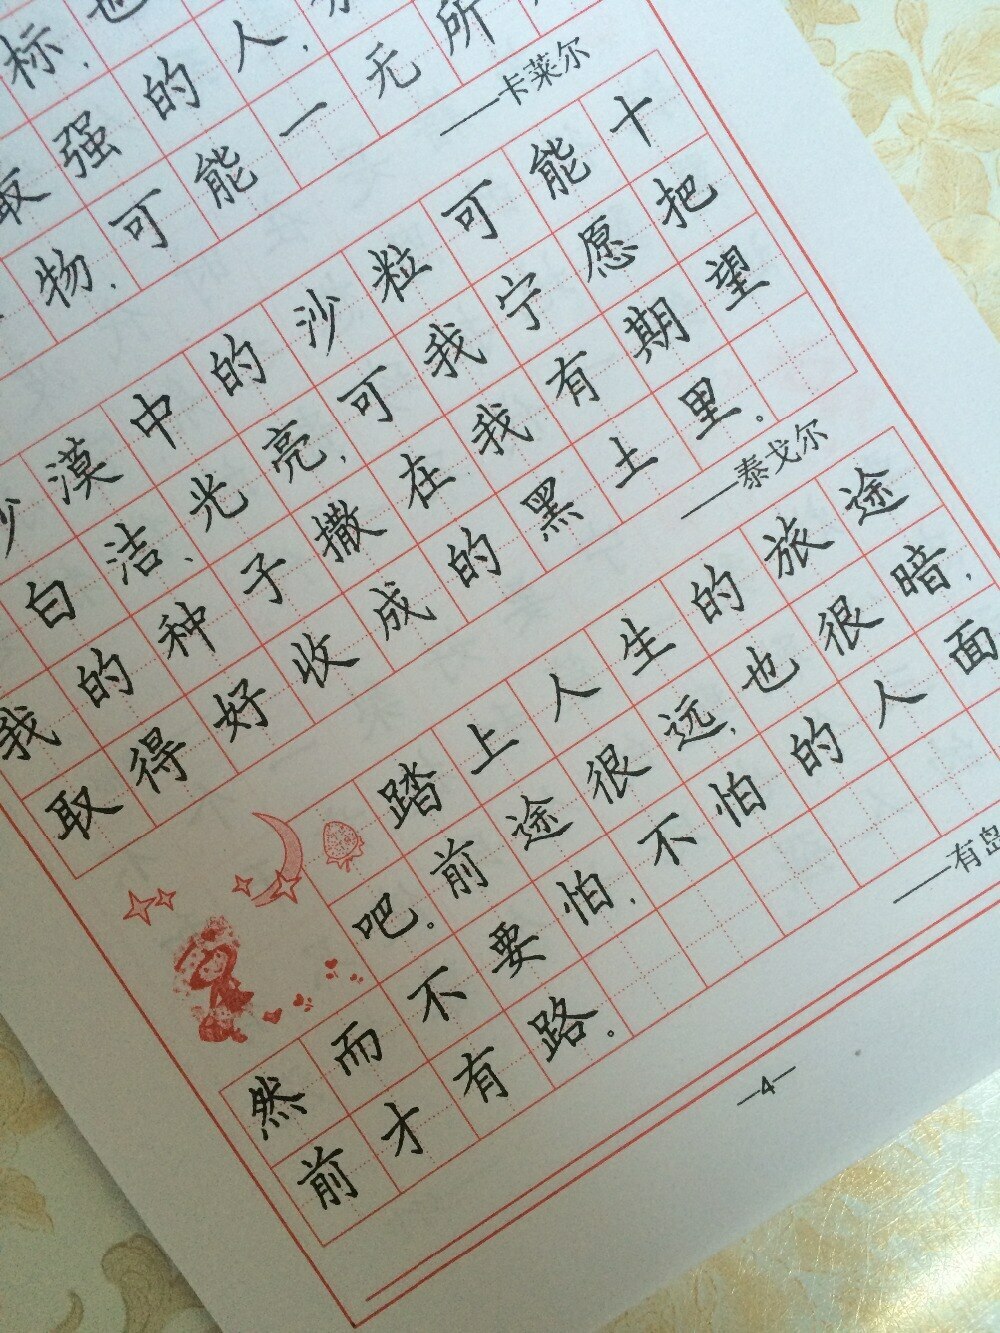 标,也
强的人,
物,可能一无所
——卡莱尔
漠中的沙粒可能十
白洁、光亮,可我宁愿把
我的种子撒在我有期望
取得好收成的黑土里。
——泰戈尔
踏上人生的旅途
吧。前途很远,也很暗,
然而不要怕,不怕的人面
前才有路。
——有岛
—4—